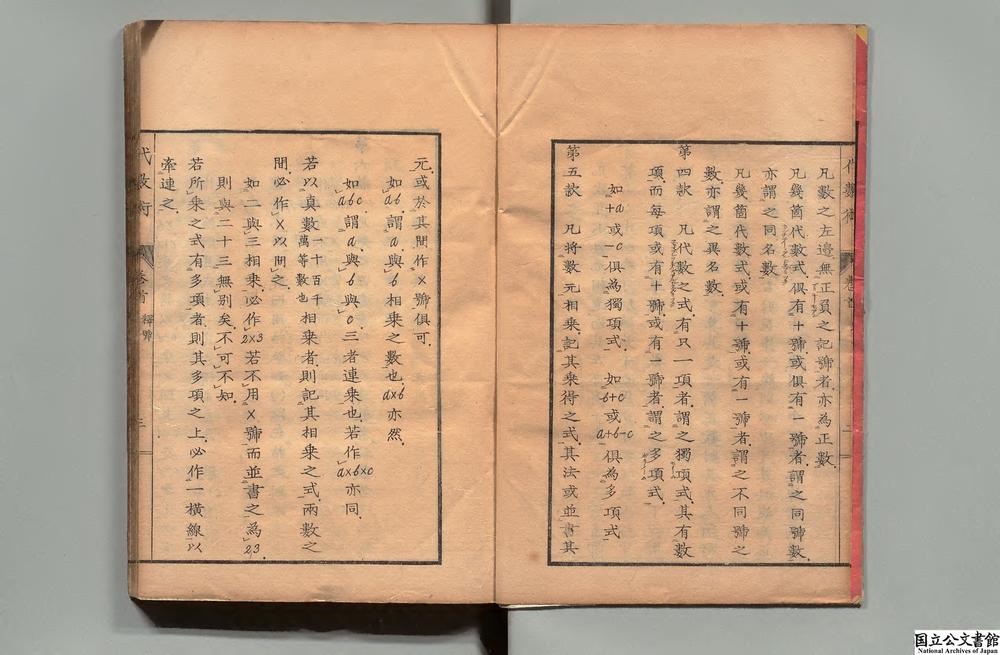 凡數之左邊無正負之記號者亦為正數
凡幾箇代數式俱有十號或俱有一號者謂之同號數
亦謂之同名數
凡幾箇代數式或有十號或有一號者謂之不同號之
數亦謂之異名數
第四款 凡代數之式有只一項者謂之獨項式其有數
項而每項或有十號或有一號者謂之多項式
如+a或-c俱為獨項式 如b+c或a+b-c俱為多項式
第五款 凡將數元相乘記其乘得之式其法或並書其
元或於其間作×號俱可
如ab謂a與b相乘之數也a×b亦然
如abc謂a與b與c三者連乘也若作a×b×c亦同
若以真數一十百千萬等數也相乘者則記其相乘之式兩數之
間必作×以間之
如二與三相乘必作2×3若不用×號而並書之為23
則與二十三無別矣不可不知
若所乘之式有多項者則其多項之上必作一橫線以
牽連之
代數術 卷首 釋號 三
国立公文書館
National Archives of Japan